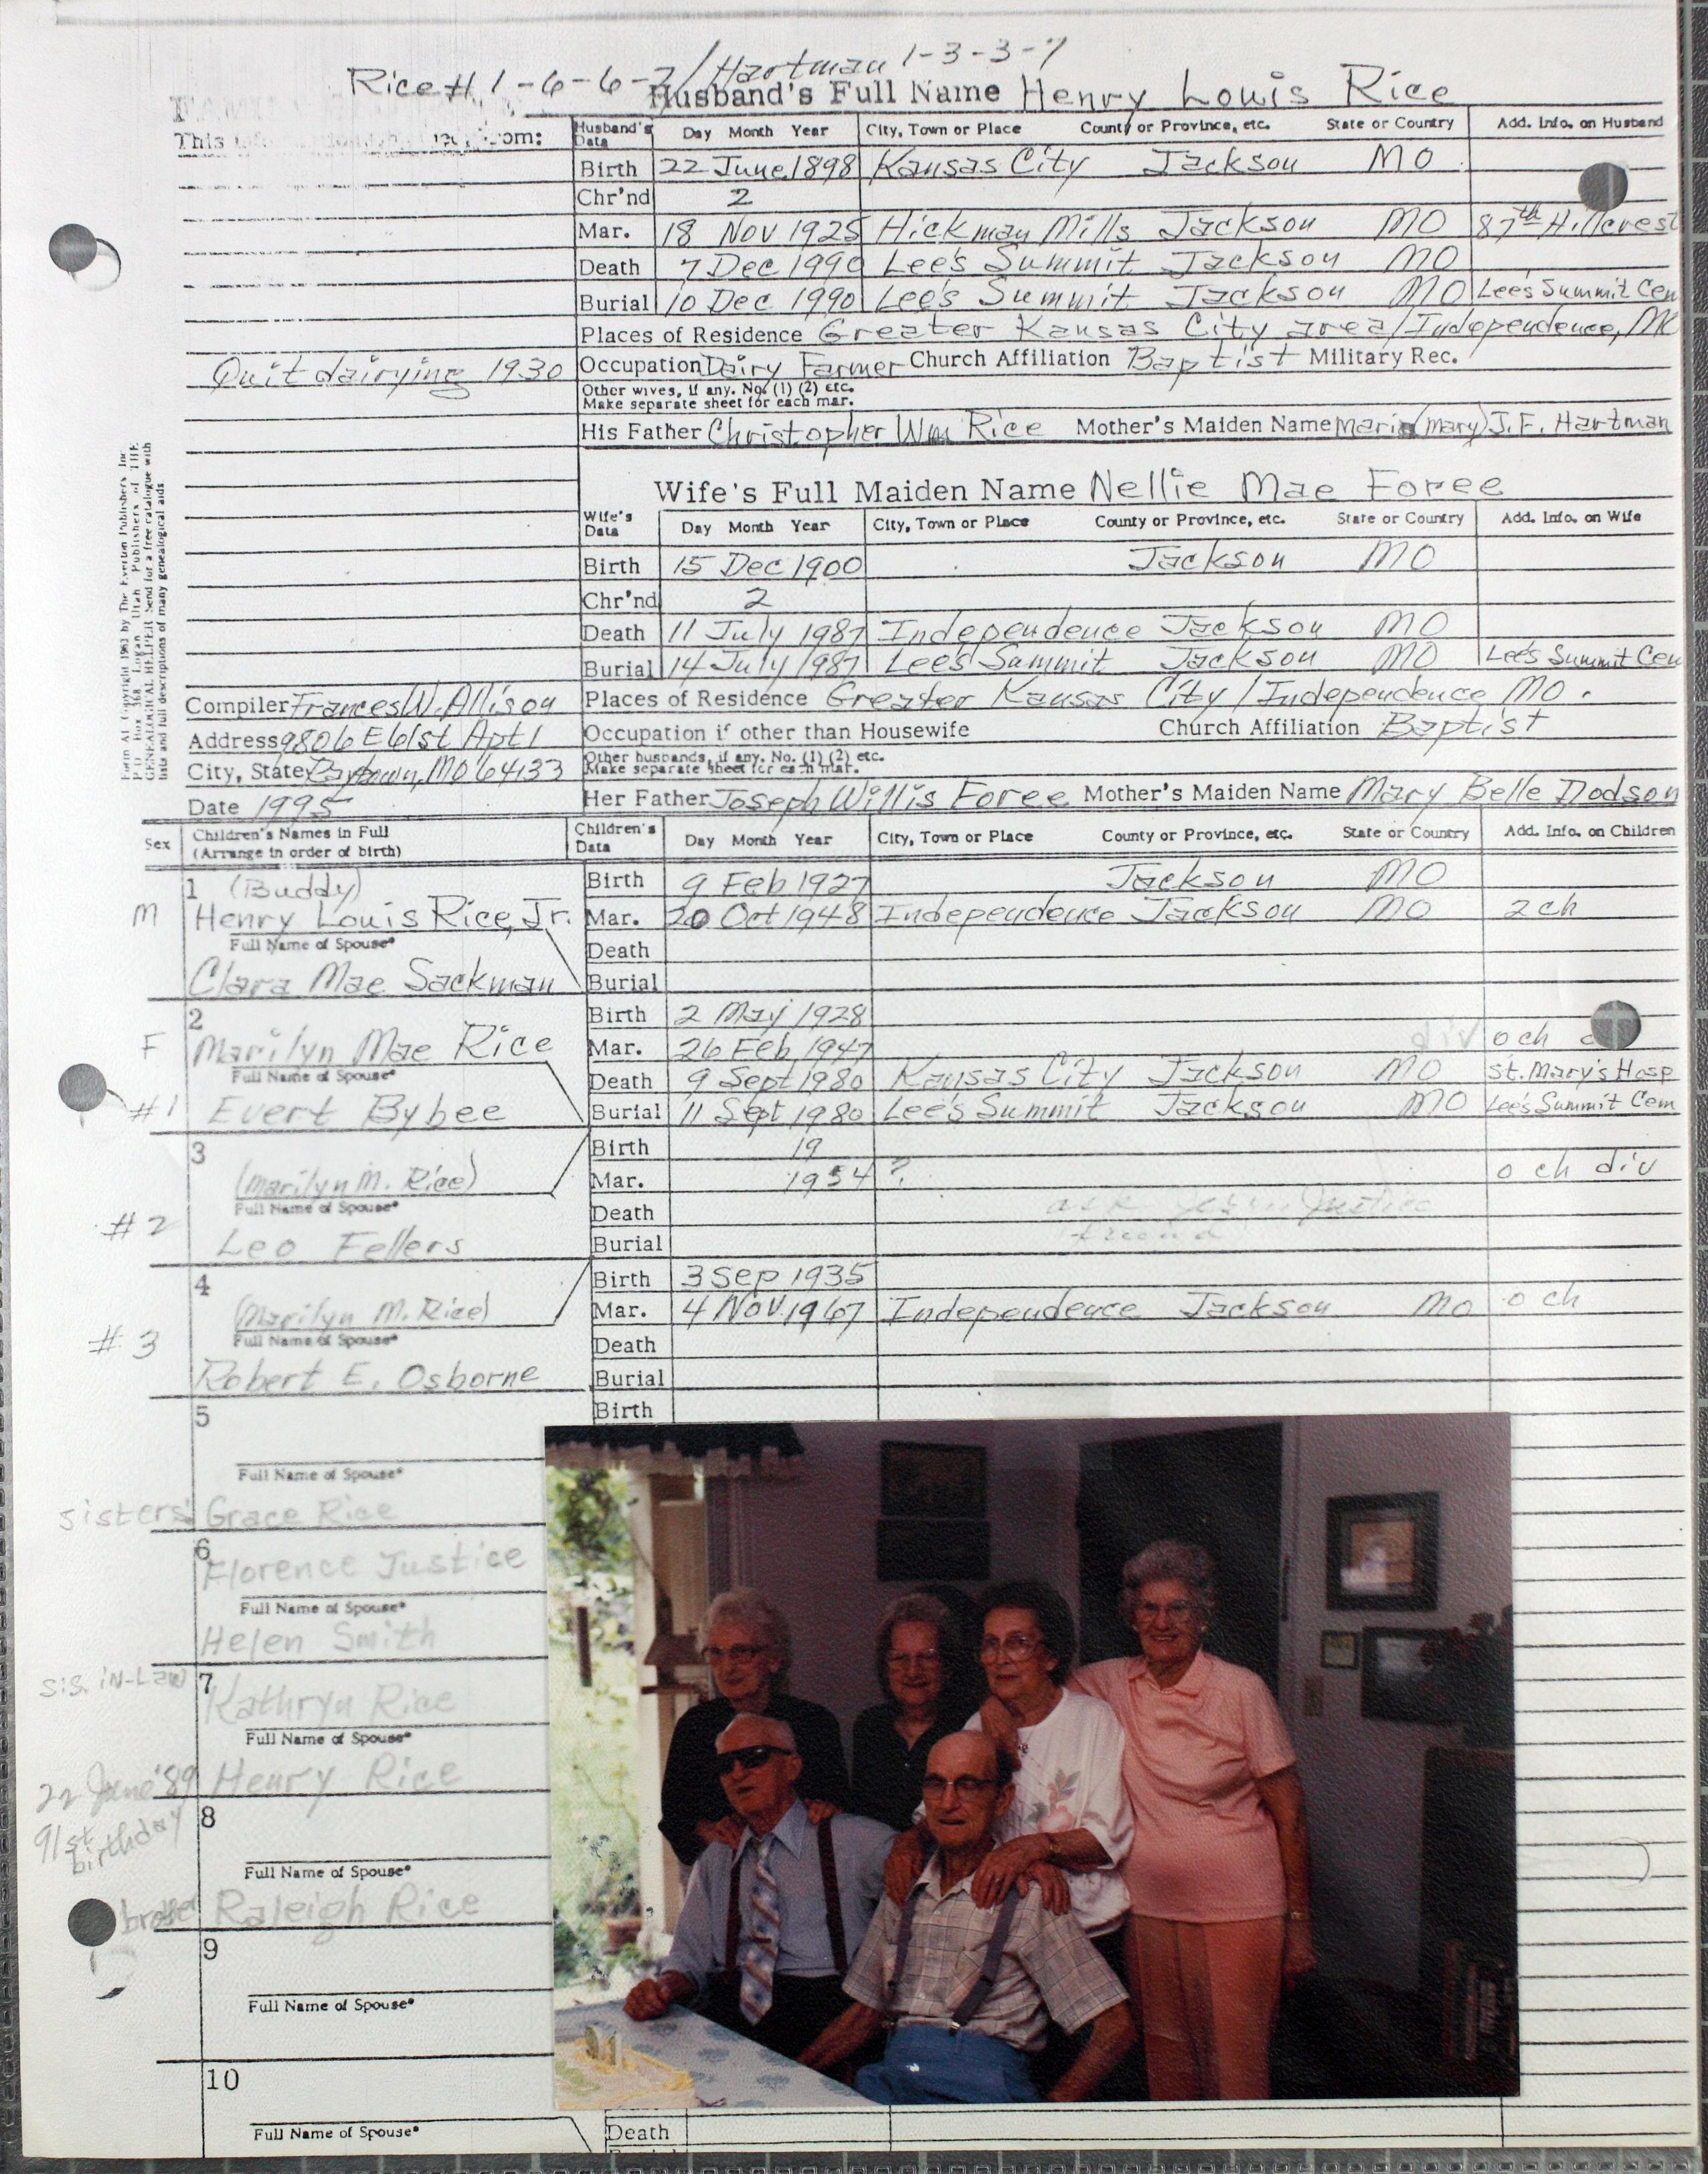 Rice # 1-6-6-2/Hartman 1-3-3-7
Husband's Full Name Henry Louis Rice
This om:
Husband's Data Day Month Year City, Town or Place County or Province, etc. State or Country Add. Info. on Husband
Birth 22 June 1898 Kansas City Jackson MO
Chr'nd 2
Mar. 18 Nov 1925 Hickman Mills Jackson MO 87th Hillcrest
Death 7 Dec 1990 Lee's Summit Jackson MO
Burial 10 Dec 1990 Lee's Summit Jackson MO Lee's Summit Cem
Places of Residence Greater Kansas City area/Independence, MO
Quit dairying 1930
Occupation Dairy Farmer Church Affiliation Baptist Military Rec.
Other wives, if any. No. (1) (2) etc.
Make separate sheet for each mar.
His Father Christopher Wm Rice Mother's Maiden Name Maria (Mary) J.F. Hartman
Form A1 Copyright 1963 by The Everton Publishers Inc
P.O. Box 368 Logan Utah Publishers of THE
GENEALOGICAL HELPER Send for a free catalogue with
lists and full descriptions of many genealogical aids
Wife's Full Maiden Name Nellie Mae Foree
Wife's Data Day Month Year City, Town or Place County or Province, etc. State or Country Add. Info. on Wife
Birth 15 Dec 1900 Jackson MO
Chr'nd 2
Death 11 July 1987 Independence Jackson MO
Burial 14 July 1987 Lee's Summit Jackson MO Lee's Summit Cem
Compiler Frances W. Allison
Places of Residence Greater Kansas City/Independence MO.
Address 9806 E 61st Apt 1
Occupation if other than Housewife Church Affiliation Baptist
City, State Raytown, MO 64133
Other husbands, if any. No. (1) (2) etc.
Make separate sheet for each mar.
Date 1995
Her Father Joseph Willis Foree Mother's Maiden Name Mary Belle Dodson
Sex Children's Names in Full (Arrange in order of birth) Children's Data Day Month Year City, Town or Place County or Province, etc. State or Country Add. Info. on Children
1 (Buddy) Birth 9 Feb 1927 Jackson MO
M Henry Louis Rice, Jr. Mar. 20 Oct 1948 Independence Jackson MO 2 ch
Full Name of Spouse* Death
Clara Mae Sackman Burial
2 Birth 2 May 1928
F Marilyn Mae Rice Mar. 26 Feb 1947 div 0 ch
Full Name of Spouse* Death 9 Sept 1980 Kansas City Jackson MO St. Mary's Hosp
#1 Evert Bybee Burial 11 Sept 1980 Lee's Summit Jackson MO Lee's Summit Cem
3 Birth 19
(Marilyn M. Rice) Mar. 1954? 0 ch div
Full Name of Spouse* Death ask Justice
#2 Leo Fellers Burial friend
4 Birth 3 Sep 1935
(Marilyn M. Rice) Mar. 4 Nov 1967 Independence Jackson MO 0 ch
Full Name of Spouse* Death
#3 Robert E. Osborne Burial
5 Birth
Full Name of Spouse*
sisters: Grace Rice
6 Florence Justice
Full Name of Spouse*
Helen Smith
sis. in-law 7 Kathryn Rice
Full Name of Spouse*
22 June '89 Henry Rice
91st birthday
8
Full Name of Spouse*
brother Raleigh Rice
9
Full Name of Spouse*
10
Full Name of Spouse* Death